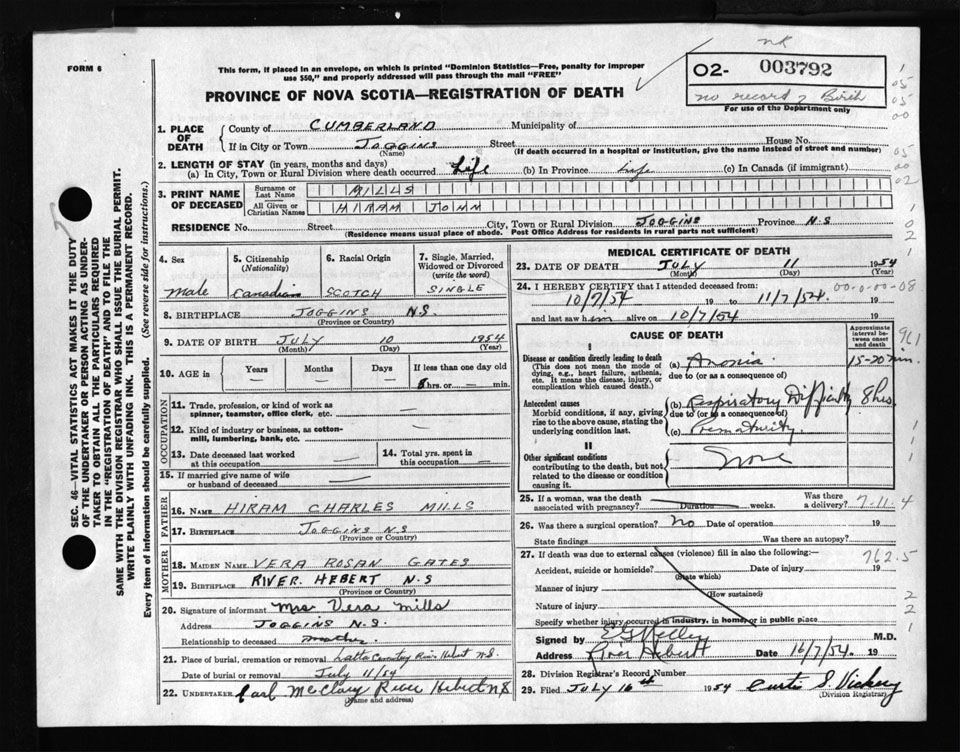 nR
FORM 6
This form, if placed in an envelope, on which is printed "Dominion Statistics—Free, penalty for improper
use $50," and properly addressed will pass through the mail "FREE"
O2- 003792
no record of Birth
For use of the Department only
PROVINCE OF NOVA SCOTIA—REGISTRATION OF DEATH
1. PLACE OF DEATH
County of CUMBERLAND Municipality of
If in City or Town JOGGINS Street House No.
(Name) (If death occurred in a hospital or institution, give the name instead of street and number)
2. LENGTH OF STAY (in years, months and days)
(a) In City, Town or Rural Division where death occurred Life (b) In Province Life (c) In Canada (if immigrant)
3. PRINT NAME OF DECEASED
Surname or Last Name MILLS
All Given or Christian Names HIRAM JOHN
RESIDENCE No. Street City, Town or Rural Division JOGGINS Province N.S
(Residence means usual place of abode. Post Office Address for residents in rural parts not sufficient)
4. Sex
Male
5. Citizenship
(Nationality)
Canadian
6. Racial Origin
SCOTCH
7. Single, Married, Widowed or Divorced
(write the word)
SINGLE
8. BIRTHPLACE JOGGINS N.S.
(Province or Country)
9. DATE OF BIRTH JULY 10 1954
(Month) (Day) (Year)
10. AGE in
Years Months Days If less than one day old
— — — 8 hrs. or — min.
OCCUPATION
11. Trade, profession, or kind of work as
spinner, teamster, office clerk, etc. —
12. Kind of industry or business, as cotton-
mill, lumbering, bank, etc. —
13. Date deceased last worked
at this occupation —
14. Total yrs. spent in
this occupation —
15. If married give name of wife
or husband of deceased —
FATHER
16. Name HIRAM CHARLES MILLS
17. Birthplace JOGGINS N.S
(Province or Country)
MOTHER
18. MAIDEN NAME VERA ROSAN GATES
19. BIRTHPLACE RIVER. HEBERT N.S
(Province or Country)
20. Signature of informant Mrs Vera Mills
Address JOGGINS N.S.
Relationship to deceased mother.
21. Place of burial, cremation or removal Cemetery River Hebert N.S
Date of burial or removal July 11/54
22. UNDERTAKER Carl McClary River Hebert N.S
(Name and address)
MEDICAL CERTIFICATE OF DEATH
23. DATE OF DEATH JULY 11 1954
(Month) (Day) (Year)
24. I HEREBY CERTIFY that I attended deceased from:
10/7/54 19 to 11/7/54. 19
and last saw him alive on 10/7/54 19
CAUSE OF DEATH
Approximate interval between onset and death
I
Disease or condition directly leading to death
(This does not mean the mode of dying, e.g., heart failure, asthenia, etc. It means the disease, injury, or complication which caused death.)
(a) Anoxia. 15-20 min.
due to (or as a consequence of)
Antecedent causes
Morbid conditions, if any, giving rise to the above cause, stating the underlying condition last.
(b) Respiratory Difficulty 8 hrs.
due to (or as a consequence of)
(c) Prematurity.
II
Other significant conditions
contributing to the death, but not related to the disease or condition causing it.
None
25. If a woman, was the death
associated with pregnancy? Duration weeks. Was there a delivery?
7-11. 4
26. Was there a surgical operation? No Date of operation 19
State findings Was there an autopsy?
27. If death was due to external causes (violence) fill in also the following:
762.5
Accident, suicide or homicide? Date of injury 19
(State which)
Manner of injury
(How sustained)
Nature of injury
Specify whether injury occurred in industry, in home, or in public place
Signed by E G Kelley M.D.
Address River Hebert Date 16/7/54. 19
28. Division Registrar's Record Number
29. Filed JULY 16th 1954 Curtis S. Vickery
(Division Registrar)
SEC. 46—VITAL STATISTICS ACT MAKES IT THE DUTY
OF THE UNDERTAKER OR PERSON ACTING AS UNDER-
TAKER TO OBTAIN ALL THE PARTICULARS REQUIRED
IN THE "REGISTRATION OF DEATH" AND TO FILE THE
SAME WITH THE DIVISION REGISTRAR WHO SHALL ISSUE THE BURIAL PERMIT.
WRITE PLAINLY WITH UNFADING INK. THIS IS A PERMANENT RECORD.
Every item of information should be carefully supplied. (See reverse side for instructions.)